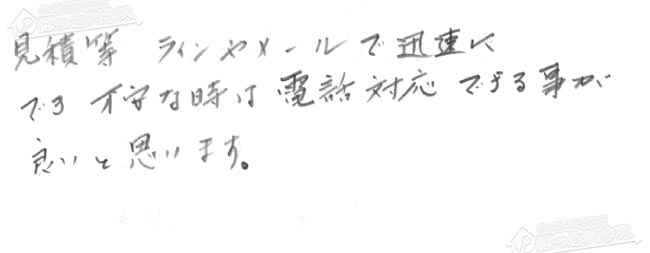 見積等 ラインやメールで迅速に
でき 不安な時は電話対応できる事が
良いと思います。